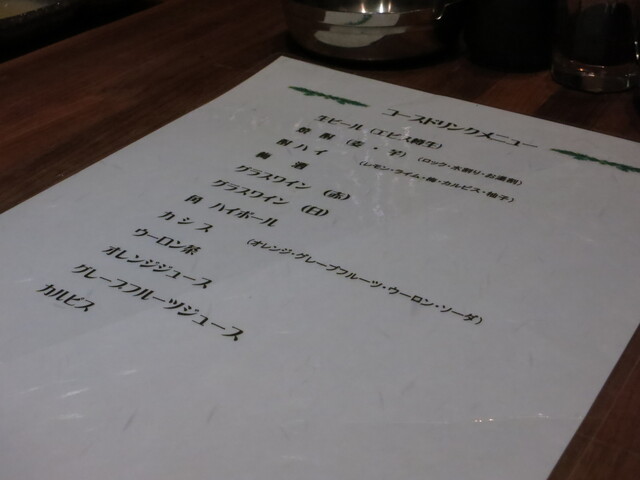 コースドリンクメニュー
生ビール (エビス樽生)
焼 酎 (麦・芋) (ロック・水割り・お湯割)
酎ハイ (レモン・ライム・梅・カルピス・柚子)
梅 酒
グラスワイン (赤)
グラスワイン (白)
角 ハイボール
カ シ ス (オレンジ・グレープフルーツ・ウーロン・ソーダ)
ウーロン茶
オレンジジュース
グレープフルーツジュース
カルピス